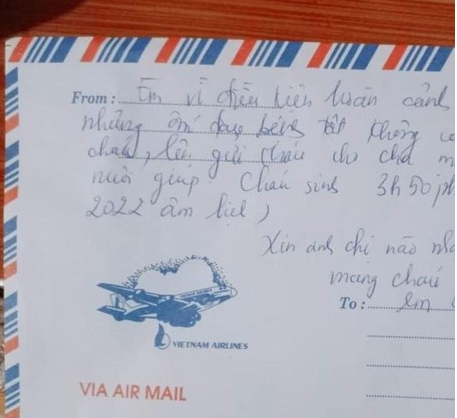 From: Em vì điều kiện hoàn cảnh
những ốm đau bệnh tật không
cháu, lên gửi cháu cho chú
nuôi giúp. Cháu sinh 3h50
2022 âm lịch)
Xin anh chị nào
mang cháu
To: em
VIETNAM AIRLINES
VIA AIR MAIL